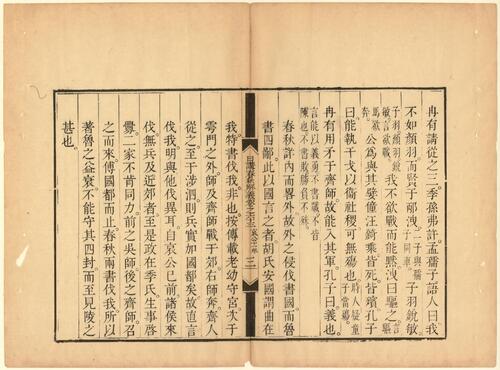 冉有請從之二季孫弗許孟孺子語人曰我
不如顏羽而賢于邴洩二子與孺子同車子羽銳敏
子羽顏羽銳敏言欲戰我不欲戰而能黙洩曰驅之言驅
馬欲奔公為與其嬖僮汪錡乘皆死皆殯孔子
曰能執干戈以衞社稷可無殤也時人疑童子當殤
冉有用矛于齊師故能入其軍孔子曰義也
言能以義勇不書戰不皆陳也不書敗勝負不殊
春秋許內而畧外故外之侵伐書國而魯
書四鄙此以國言之者胡氏安國謂曲在
日講春秋解義卷之六十三 哀公十一年 三
我特書伐我非也按傳載老幼守宮次于
雩門之外師及齊師戰于郊右師奔齊人
從之至于涉泗則兵實加國都矣故直言
伐我明與他伐異耳自哀公已前諸侯來
伐無兵及近郊者至是或在季氏生事啓
釁二家不肯同力前之吳師後之齊師召
之而來傅國都而止春秋兩書伐我所以
著魯之益衰不能守其四封而至見陵之
甚也